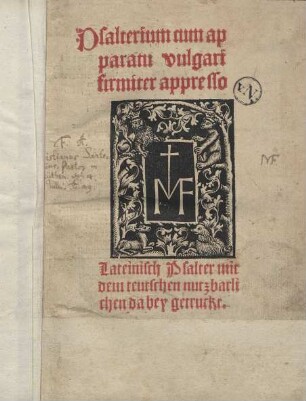 Psalterium cum ap
paratu vulgari
firmiter appresso
V.N.
MF
MF
Lateinisch Psalter mit
dem teutschen nutzbarli
chen dabey getruckt.